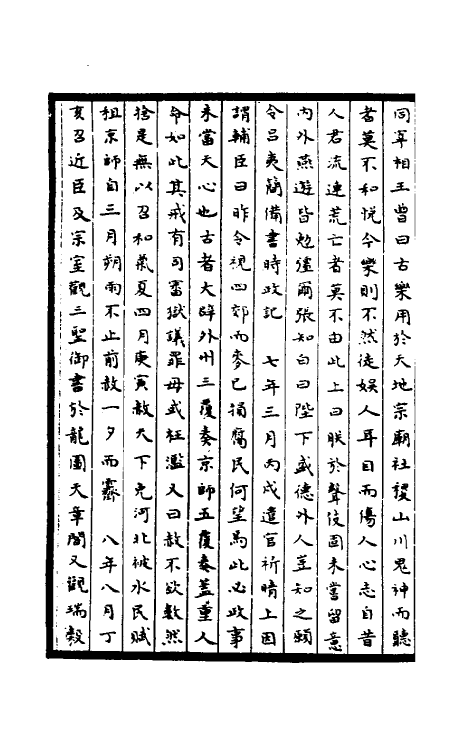 同宰相王曾曰古樂用於天地宗廟社稷山川鬼神而聽
者莫不和悅今樂則不然徒娛人耳目而傷人心志自昔
人君流連荒亡者莫不由此上曰朕於聲伎固未嘗留意
内外燕遊皆勉彊爾張知白曰陛下盛德外人豈知之願
令吕夷簡備書時政記　七年三月丙戌遣官祈晴上因
謂輔臣曰昨令視四郊而麥已損腐民何望焉此必政事
未當天心也古者大辟外州三覆奏京師五覆奏蓋重人
命如此其戒有司審獄議罪毋或枉濫又曰赦不欲數然
捨是無以召和氣夏四月庚寅赦天下免河北被水民賦
租京師自三月朔雨不止前赦一夕而霽　八年八月丁
亥召近臣及宗室觀三聖御書於龍圖天章閣又觀瑞穀